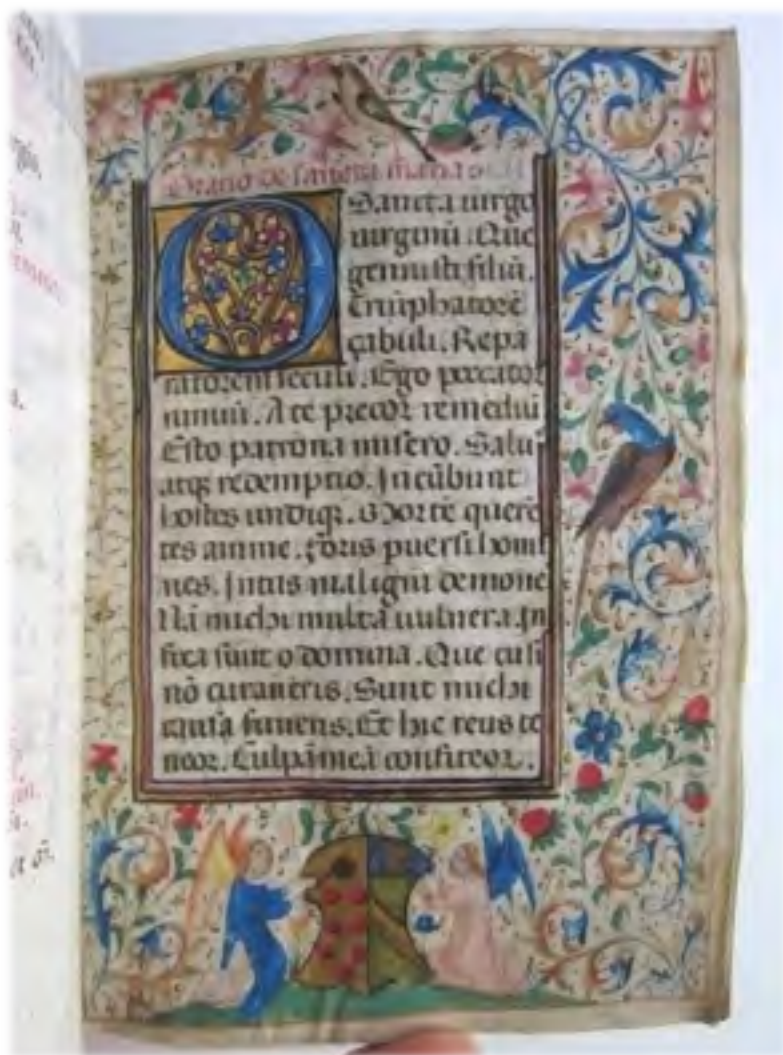 Oratio de sancta maria
O Sancta uirgo
uirginū. Que
genuisti filiū.
Triūphatorē
zabuli. Repa
ratorem seculi. Ego peccator
nimiū. A te precor remediū
Esto patrona misero. Salus
atqȝ redemptio. Incūbunt
hostes undiqȝ. Mortē querē
tes anime. foris puersi homi
nes. Intus maligni demone
Nā michi multa uulnera. In
fixa sunt o domina. Que tu si
nō curaueris. Sunt michi
causa funeris. Et hic reus te
neor. Culpā meā confiteor.